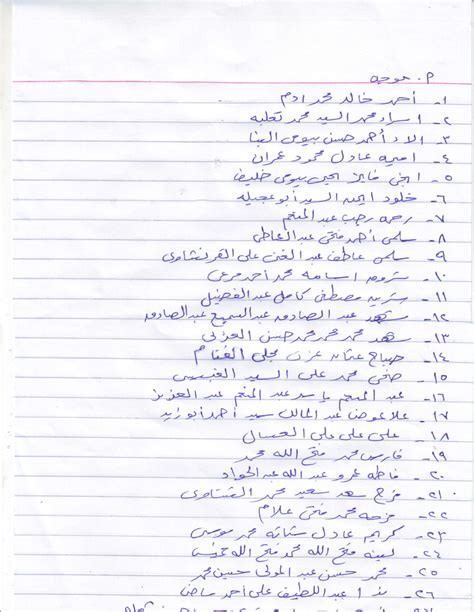 م. موجه
١- أحمد خالد محمد ادم
٢- اسراء محمد السيد محمد ثعلبه
٣- الاء أحمد حسن بيومى البنا
٤- اميره عادل محمود عمران
٥- انجى فايز يحيى بيومى خليف
٦- خلود ايمن السيد أبو عجيله
٧- رحمه رجب عبد المنعم
٨- سلمى أحمد فتحى عبد العاطى
٩- سلمى عاطف عبد الغنى على القرنشاوى
١٠- اسامه محمد أحمد مرعى
١١- مصطفى كامل عبد الفضيل
١٢- شهد عبد الصادق عبد السميع عبد الصادق
١٣- شهد محمد محمد محمد حسن
١٤- عزت مجلى الغنام
١٥- ضحى محمد على السيد
١٦- عبد المنعم ياسر عبد المنعم عبد العزيز
١٧- علا عوض عبد المالك سيد أحمد أبو زيد
١٨- على على على العسال
١٩- فارس محمد فتح الله محمد
٢٠- فاطمه عمرو عبد الله عبد الجواد
٢١- سعد سعيد محمد
٢٢- محمد فتحى علام
٢٣- كريم عادل شحاته محمد موسى
٢٤- لبينه فتح الله محمد فتح الله
٢٥- محمد حسن عبد المولى حسين محمد
٢٦- عبد اللطيف على أحمد